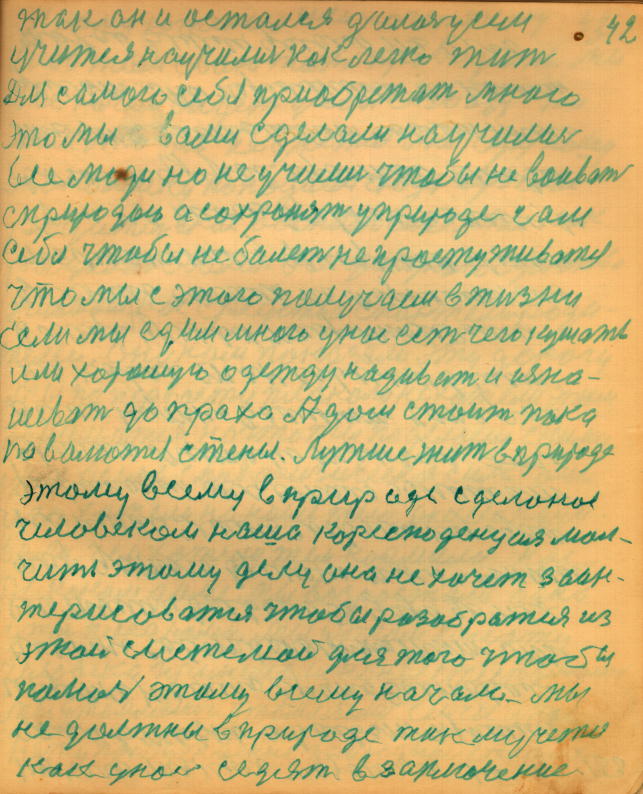 42
так он и остался далая усем
учится научился как легко жит
Для самого себя приобретат много
это мы вами сделали научилис
все люди но не училис чтобы не воиват
сприродою а сохронят уприроде сам
себя чтобы не болет не простуживатся
что мы с этого получаем в жизни
если мы едим много унас ест чего кушать
или хорошую одежду надиват и изна-
шеват до праха А дом стоит пака
по валються стены. Лутше жит в природе
этому всему в природе сделоное
чиловеком наша коресподенция мол-
чить этому делу она не хочет заин-
терисоватся чтобы разобратся из
этой системой для того чтобы
помоч этому всему начало. мы
не должны в природе так мучется
как унас седят в заключение